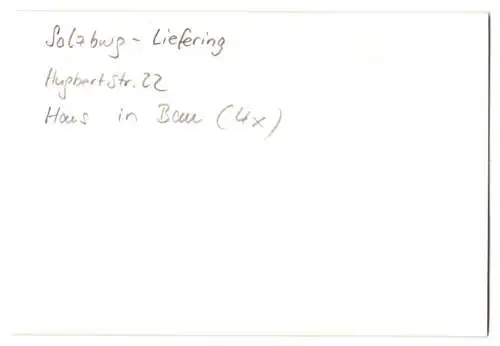 Salzburg - Liefering
Hupbertstr. 22
Haus in Bau (4x)